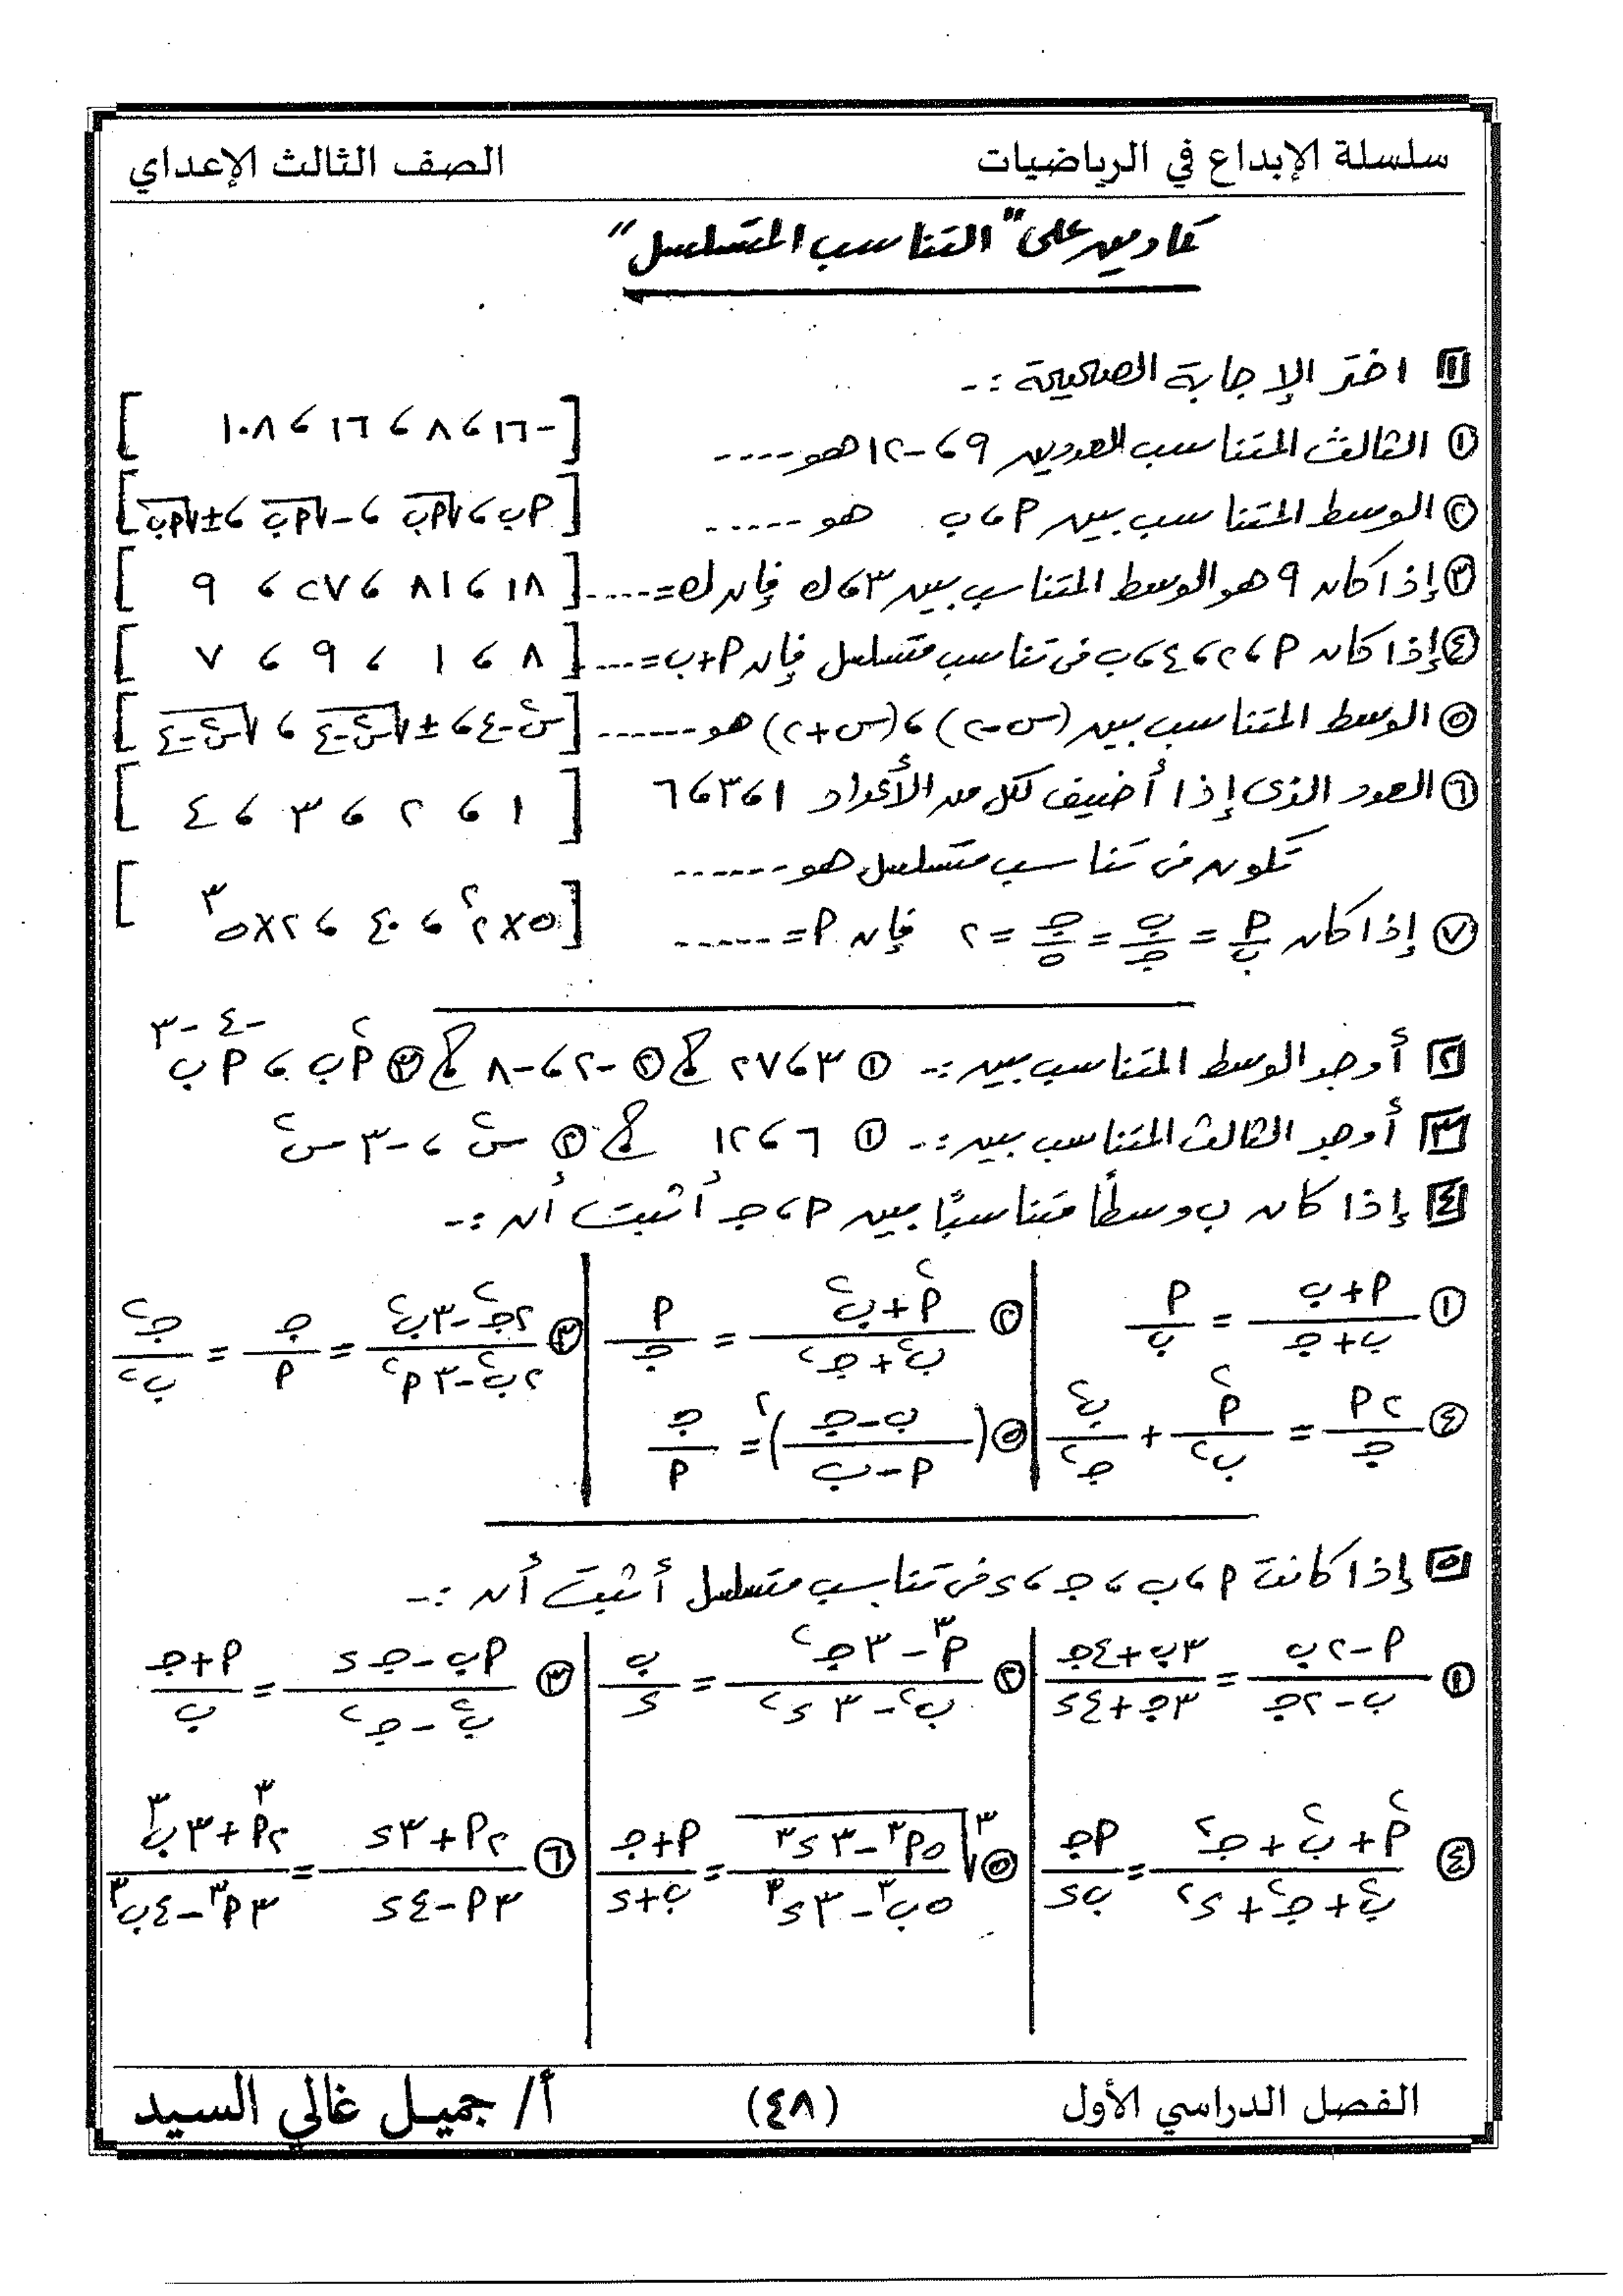 سلسلة الإبداع في الرياضيات الصف الثالث الإعداي
تمارين على "التناسب المتسلسل"
[١] اختر الإجابة الصحيحة :-
(١) الثالث المتناسب للعددين ٩ ، -١٢ هو ---- [ -١٦ ، ٨ ، ١٦ ، ١٠٨ ]
(٢) الوسط المتناسب بين أ ، ب هو ----- [ أب ، √أب ، -√أب ، ±√أب ]
(٣) إذا كان ٩ هو الوسط المتناسب بين ٣ ، ك فإن ك = ---- [ ١٨ ، ٨١ ، ٢٧ ، ٩ ]
(٤) إذا كان أ ، ٢ ، ٤ ، ب في تناسب متسلسل فإن أ + ب = ---- [ ٨ ، ١ ، ٩ ، ٧ ]
(٥) الوسط المتناسب بين (س-٢) ، (س+٢) هو ------ [ س²-٤ ، ±√س²-٤ ، √س²-٤ ]
(٦) العدد الذي إذا أضيف لكل من الأعداد ١ ، ٣ ، ٦ [ ١ ، ٢ ، ٣ ، ٤ ]
تكون في تناسب متسلسل هو ------
(٧) إذا كان أ/ب = ب/ج = ج/٥ = ٢ فإن أ = ------ [ ٥×٢² ، ٤٠ ، ٢×٥³ ]
[٢] أوجد الوسط المتناسب بين :- (١) ٣ ، ٢٧ (٢) -٢ ، -٨ (٣) أ²ب ، أ⁻⁴ب⁻³
[٣] أوجد الثالث المتناسب بين :- (١) ٦ ، ١٢ (٢) س² ، -٣س²
[٤] إذا كان ب وسطًا متناسبًا بين أ ، ج أثبت أن :-
(١) (أ+ب)/(ب+ج) = أ/ب (٢) (أ²+ب²)/(ب²+ج²) = أ/ج (٣) (٢ج²-٣ب²)/(٢ب²-٣أ²) = ج/أ = ج²/ب²
(٤) ٢أ/ج = أ²/ب² + ب²/ج² (٥) ((ب-ج)/(أ-ب))² = ج/أ
[٥] إذا كانت أ ، ب ، ج ، د في تناسب متسلسل أثبت أن :-
(١) (أ-٢ب)/(ب-٢ج) = (٣ب+٤ج)/(٣ج+٤د) (٢) (أ³-٣ج²)/(ب²-٣د²) = ب/د (٣) (أب-جد)/(ب²-ج²) = (أ+ج)/ب
(٤) (أ²+ب²+ج²)/(ب²+ج²+د²) = أج/بد (٥) ∛((٥أ³-٣د³)/(٥ب³-٣د³)) = (أ+ج)/(ب+د) (٦) (٢أ+٣د)/(٣أ-٤د) = (٢أ³+٣ب³)/(٣أ³-٤ب³)
الفصل الدراسي الأول (٤٨) أ/ جميل غالي السيد